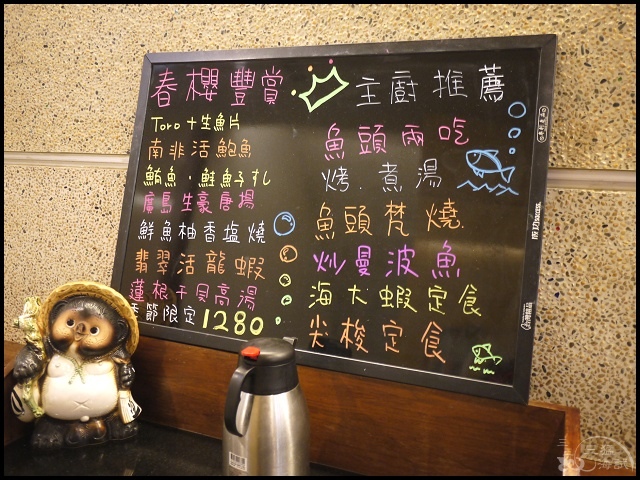 春櫻豐賞
Toro+生魚片
南非活鮑魚
鮪魚·鮭魚子丼
廣島生豪唐揚
鮮魚柚香塩燒
翡翠活龍蝦
蓮根干貝高湯
季節限定1280
主廚推薦
魚頭兩吃
烤.煮湯
魚頭梵燒.
炒曼波魚
海大蝦定食
尖梭定食
成功success